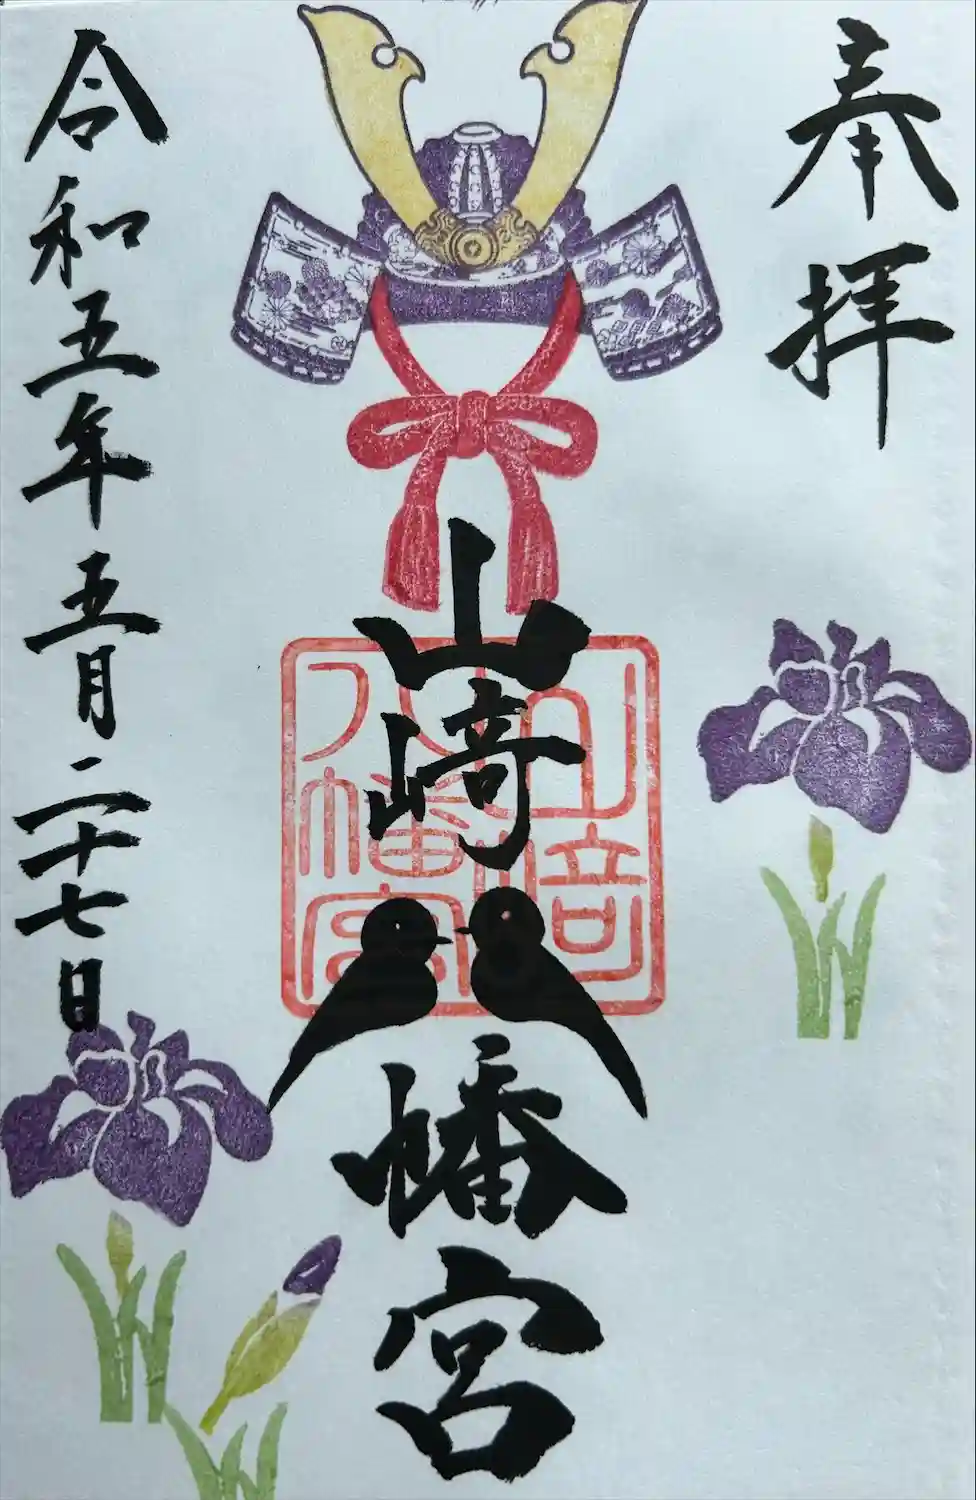 奉拝
山崎八幡宮
山崎八幡宮
令和五年五月二十七日